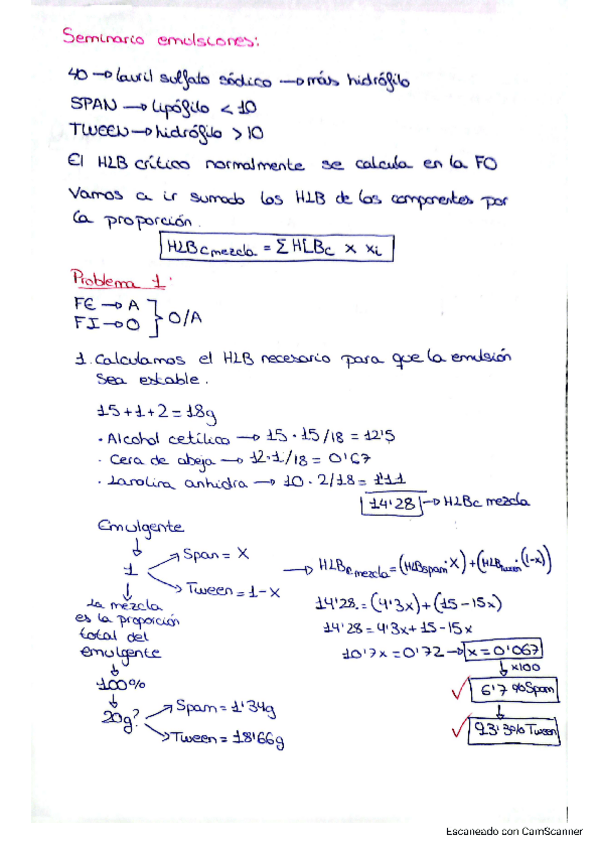 Seminario emulsiones:
40 → lauril sulfato sódico → más hidrófilo
SPAN → lipófilo < 10
TWEEN → hidrófilo > 10
El HLB crítico normalmente se calcula en la FO
Vamos a ir sumado los HLB de los componentes por
la proporción.
HLBc mezcla = Σ HLBc x xi
Problema 1:
FE → A
FI → O
O/A
1. Calculamos el HLB necesario para que la emulsión
sea estable.
15+1+2=18g
· Alcohol cetílico → 15 · 15/18 = 12'5
· Cera de abeja → 12·1/18 = 0'67
· Lanolina anhidra → 10 · 2/18 = 1'11
14'28 → HLBc mezcla
Emulgente
↓
1
Span = X
Tween = 1-X
→ HLBc mezcla = (HLBspam·X)+(HLBtween·(1-x))
14'28 = (4'3x)+(15-15x)
14'28 = 4'3x+15-15x
10'7x = 0'72 → x = 0'067
↓ x100
6'7 % Spam
↓
93'3% Tween
↓
la mezcla
es la proporción
total del
emulgente
↓
100%
↓
20g?
Spam = 1'34g
Tween = 18'66g
Escaneado con CamScanner